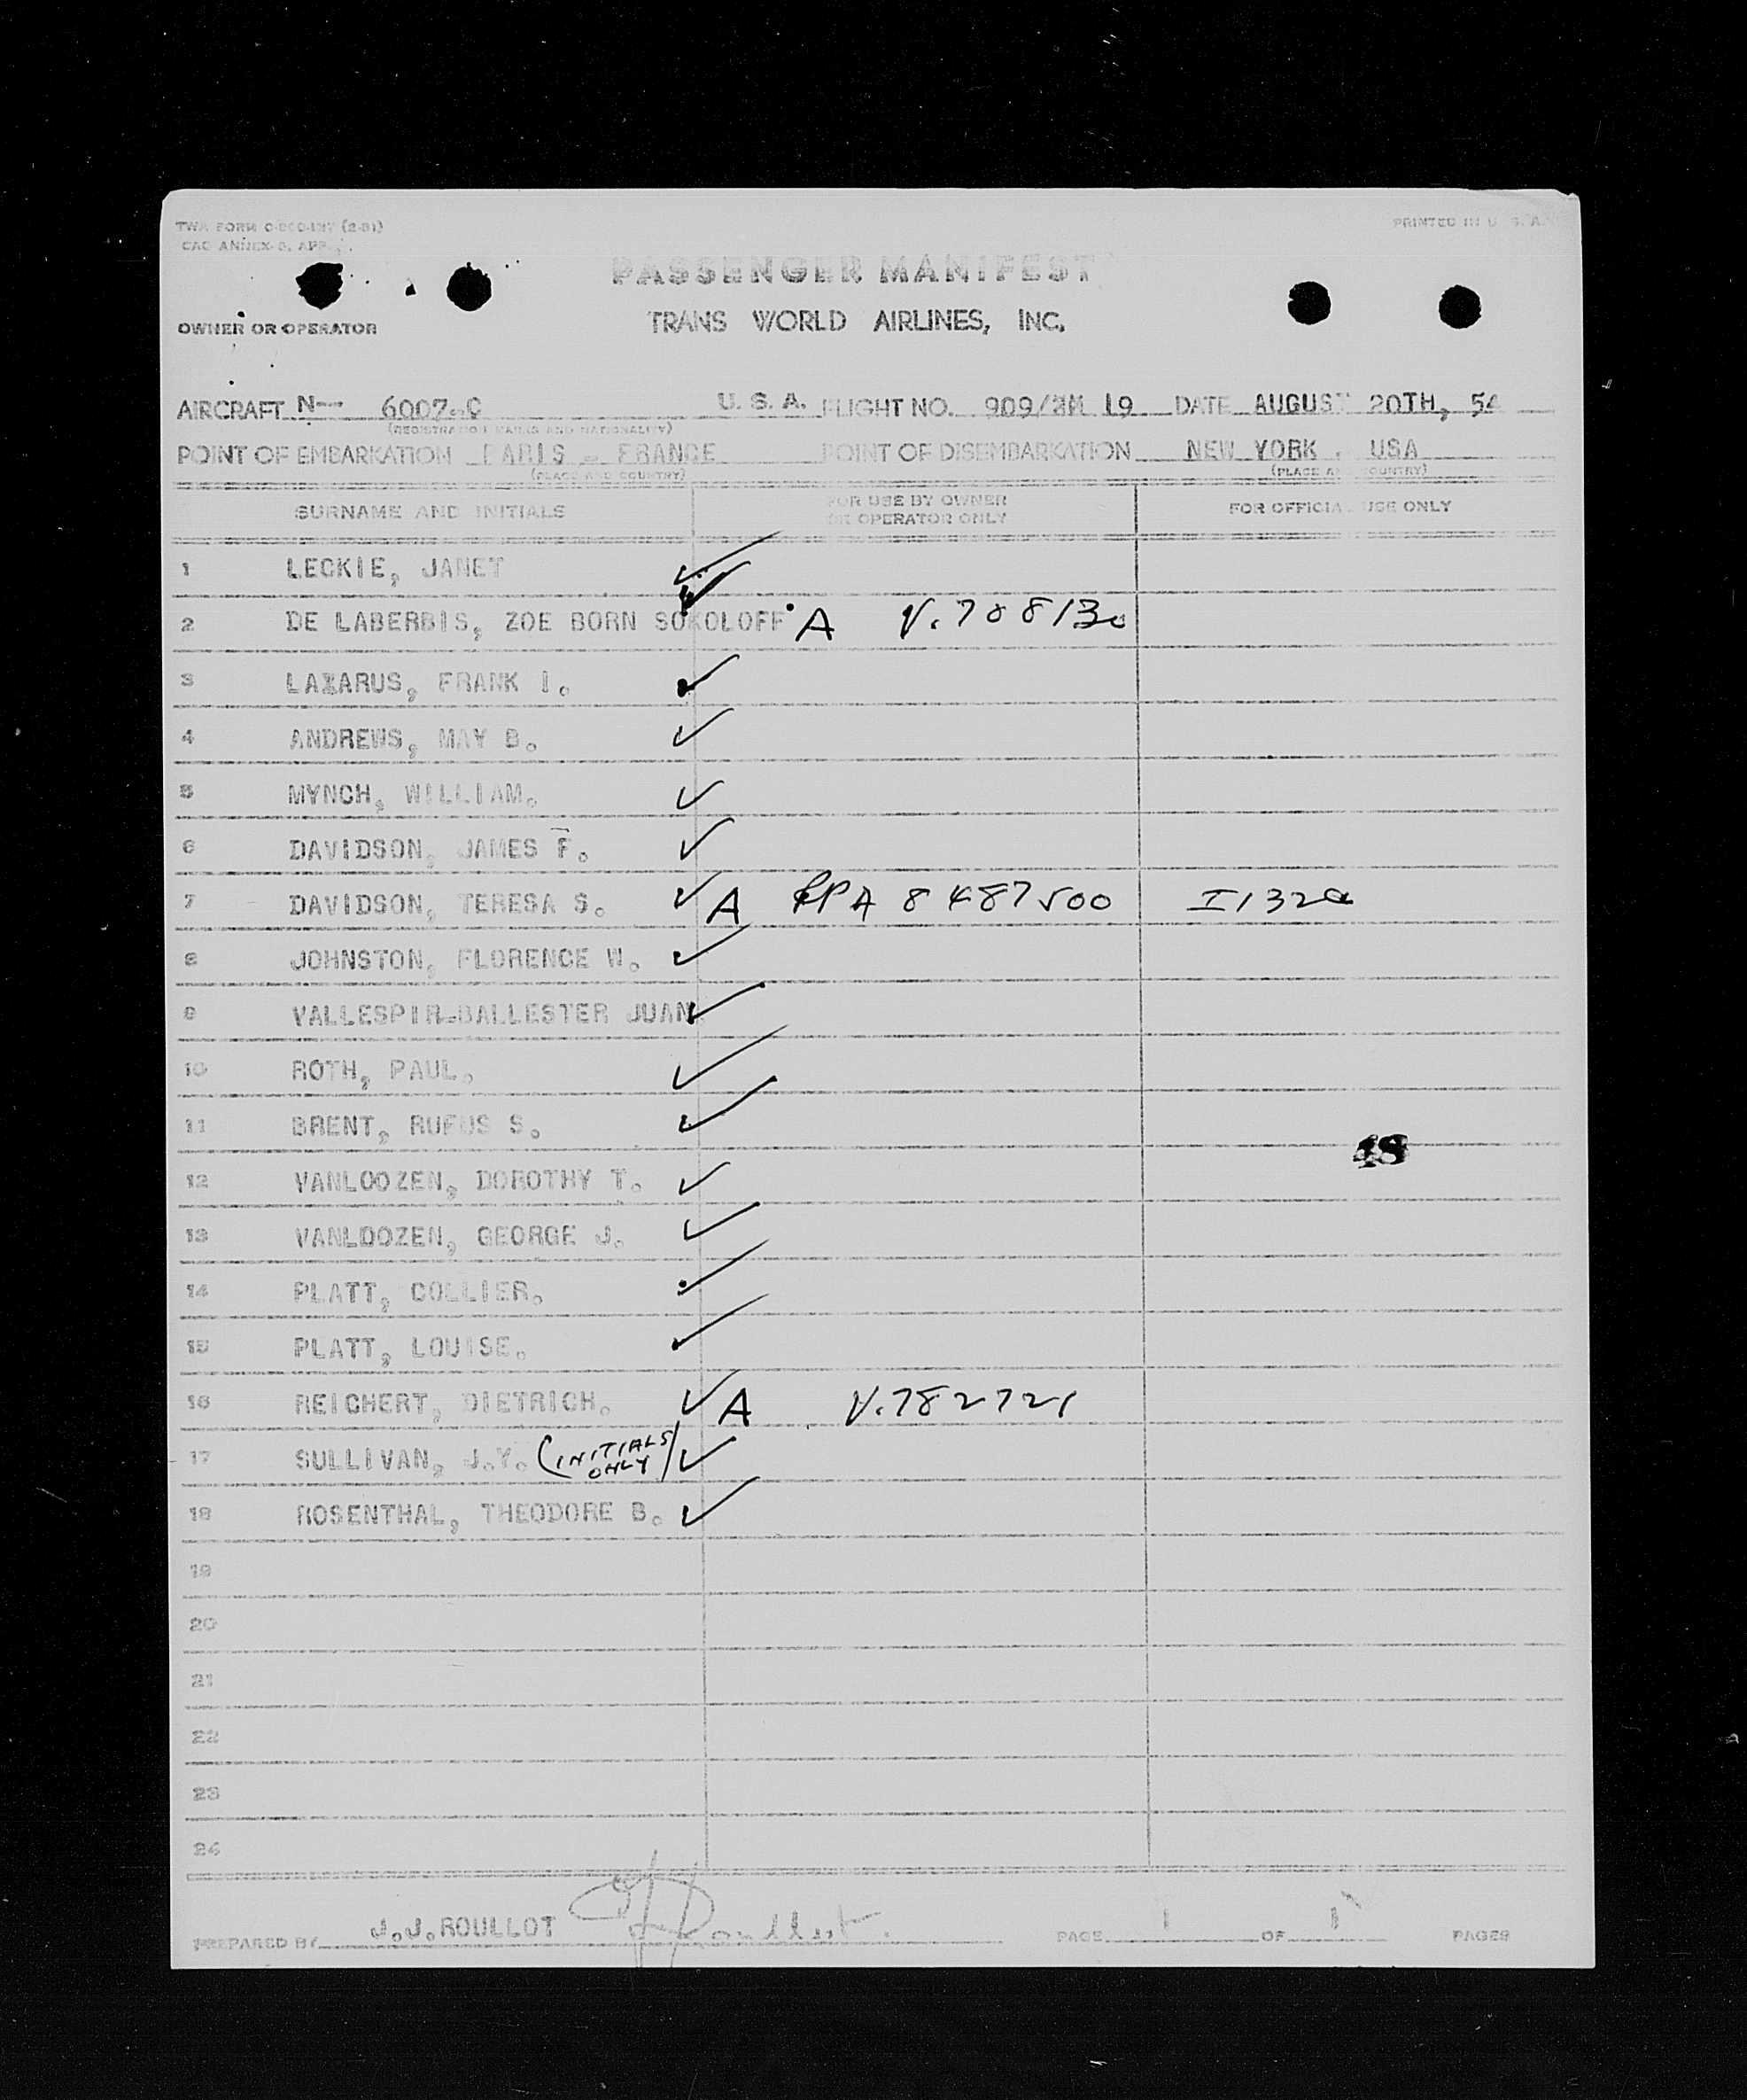 PRINTED IN U. S. A.
PASSENGER MANIFEST
OWNER OR OPERATOR
TRANS WORLD AIRLINES, INC.
AIRCRAFT N-- 6007-C U. S. A. FLIGHT NO. 909/ 19 DATE AUGUST 20TH, 54
(REGISTRATION MARKS AND NATIONALITY)
POINT OF EMBARKATION PARIS - FRANCE POINT OF DISEMBARKATION NEW YORK . USA
(PLACE AND COUNTRY) (PLACE AND COUNTRY)
SURNAME AND INITIALS FOR USE BY OWNER OR OPERATOR ONLY FOR OFFICIAL USE ONLY
1 LECKIE, JANET
2 DE LABERBIS, ZOE BORN SOKOLOFF A V.788130
3 LAZARUS, FRANK I.
4 ANDREWS, MAY B.
5 MYNCH, WILLIAM.
6 DAVIDSON, JAMES F.
7 DAVIDSON, TERESA S. A A 8487500 I132a
8 JOHNSTON, FLORENCE W.
9 VALLESPIR-BALLESTER JUAN
10 ROTH, PAUL.
11 BRENT, RUFUS S.
48
12 VANLOOZEN, DOROTHY T.
13 VANLDOZEN, GEORGE J.
14 PLATT, COLLIER.
15 PLATT, LOUISE.
16 REICHERT, DIETRICH. A V.782721
17 SULLIVAN, J.Y. (INITIALS ONLY)
18 ROSENTHAL, THEODORE B.
19
20
21
22
23
24
PREPARED BY J.J.ROULLOT PAGE 1 OF 1 PAGES